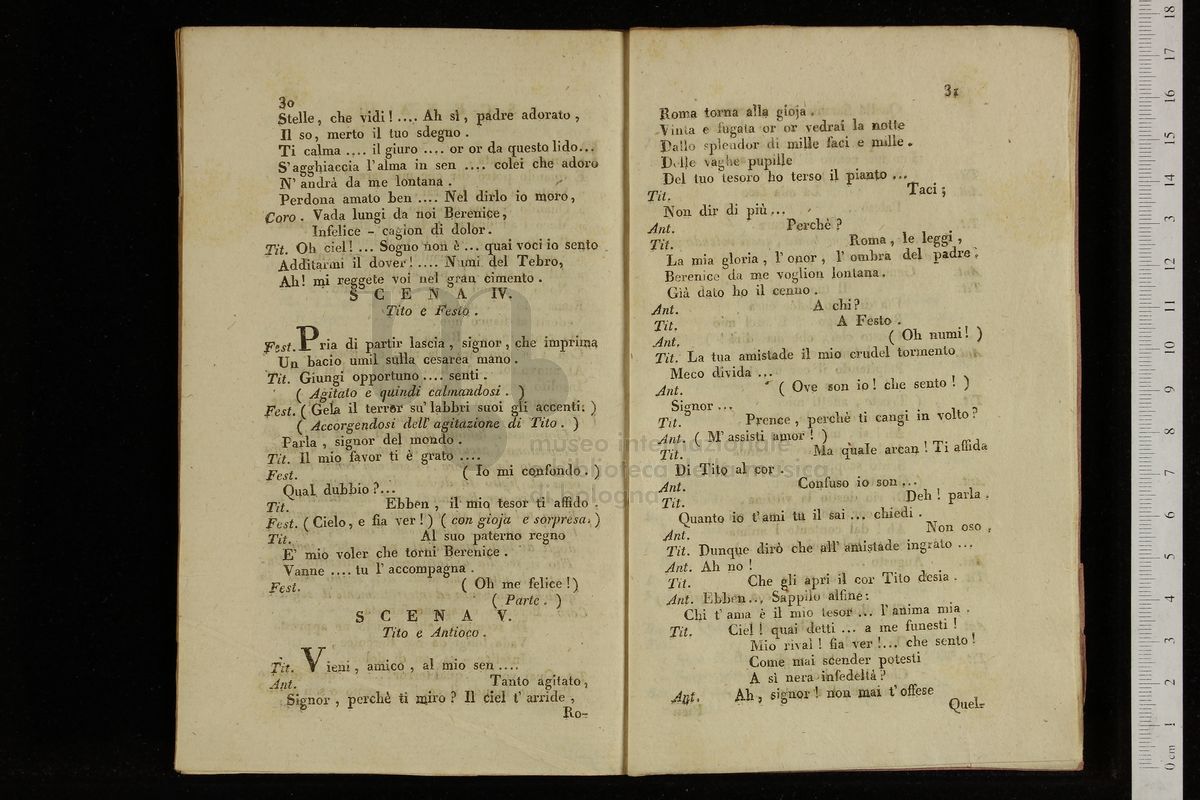 30
Stelle, che vidi! .... Ah sì, padre adorato,
Il so, merto il tuo sdegno.
Ti calma .... il giuro .... or or da questo lido...
S'agghiaccia l'alma in sen .... colei che adoro
N'andrà da me lontana.
Perdona amato ben .... Nel dirlo io moro,
Coro. Vada lungi da noi Berenice,
Infelice - cagion di dolor.
Tit. Oh ciel! ... Sogno non è ... quai voci io sento
Additarmi il dover! .... Numi del Tebro,
Ah! mi reggete voi nel gran cimento.
SCENA IV.
Tito e Festo.
Fest. Pria di partir lascia, signor, che imprima
Un bacio umil sulla cesarea mano.
Tit. Giungi opportuno .... senti.
( Agitato e quindi calmandosi. )
Fest. ( Gela il terror su' labbri suoi gli accenti. )
( Accorgendosi dell' agitazione di Tito. )
Parla, signor del mondo.
Tit. Il mio favor ti è grato ....
Fest. ( Io mi confondo. )
Qual dubbio?...
Tit. Ebben, il mio tesor ti affido.
Fest. ( Cielo, e fia ver! ) ( con gioja e sorpresa. )
Tit. Al suo paterno regno
E' mio voler che torni Berenice.
Vanne .... tu l'accompagna.
Fest. ( Oh me felice! )
( Parte. )
SCENA V.
Tito e Antioco.
Tit. Vieni, amico, al mio sen ....
Ant. Tanto agitato,
Signor, perchè ti miro? Il ciel t'arride,
Ro-
31
Roma torna alla gioja.
Vinta e fugata or or vedrai la notte
Dallo splendor di mille faci e mille.
Delle vaghe pupille
Del tuo tesoro ho terso il pianto ...
Tit. Taci;
Non dir di più...
Ant. Perchè?
Tit. Roma, le leggi,
La mia gloria, l'onor, l'ombra del padre,
Berenice da me voglion lontana.
Già dato ho il cenno.
Ant. A chi?
Tit. A Festo.
Ant. ( Oh numi! )
Tit. La tua amistade il mio crudel tormento
Meco divida ...
Ant. ( Ove son io! che sento! )
Signor ...
Tit. Prence, perchè ti cangi in volto?
Ant. ( M'assisti amor! )
Tit. Ma quale arcan! Ti affida
Di Tito al cor.
Ant. Confuso io son ...
Tit. Deh! parla.
Quanto io t'ami tu il sai ... chiedi.
Ant. Non oso.
Tit. Dunque dirò che all' amistade ingrato ...
Ant. Ah no!
Tit. Che gli apri il cor Tito desia.
Ant. Ebben... Sappilo alfine:
Chi t'ama è il mio tesor ... l'anima mia.
Tit. Ciel! quai detti ... a me funesti!
Mio rival! fia ver!... che sento!
Come mai scender potesti
A sì nera infedeltà?
Ant. Ah, signor! non mai t'offese
Quel-
museo internazionale
biblioteca della musica
di bologna
0 cm 1 2 3 4 5 6 7 8 9 10 11 12 13 14 15 16 17 18